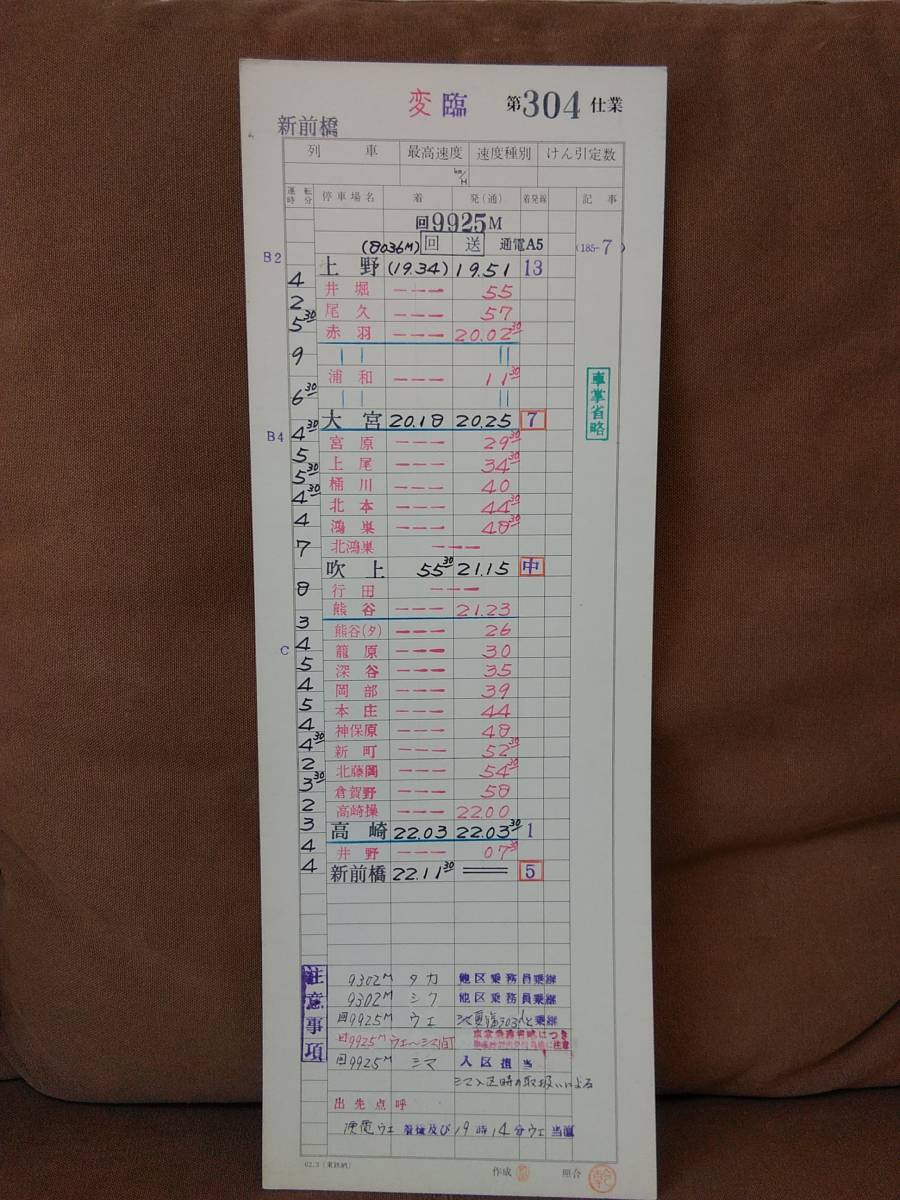 変臨 第304仕業
新前橋
列車 最高速度 速度種別 けん引定数
km/H
運転時分 停車場名 着 発(通) 着発線 記事
回9925M
(8036M) 回送 通電A5 (185-7)
B2 上野 (19.34) 19.51 13
4 井堀 ーーー 55
2 尾久 ーーー 57
5 30 赤羽 ーーー 20.02 30
9 || ||
浦和 ーーー 11 30
車掌省略
6 30 || ||
大宮 20.18 20.25 7
B4 4 30 宮原 ーーー 29 30
5 上尾 ーーー 34 30
5 30 桶川 ーーー 40
4 30 北本 ーーー 44 30
4 鴻巣 ーーー 48 30
7 北鴻巣 ーーー
吹上 55 30 21.15 中
8 行田 ーーー
熊谷 ーーー 21.23
3 熊谷(タ) ーーー 26
C 4 籠原 ーーー 30
5 深谷 ーーー 35
4 岡部 ーーー 39
5 本庄 ーーー 44
4 神保原 ーーー 48
4 30 新町 ーーー 52 30
2 北藤岡 ーーー 54 30
3 30 倉賀野 ーーー 58
2 高崎操 ーーー 22.00
3 高崎 22.03 22.03 30 1
4 井野 ーーー 07 30
4 新前橋 22.11 30 5
注意事項
9302M タカ 他区乗務員乗継
9302M シク 他区乗務員乗継
回9925M ウエ 変臨303と乗継
回9925M ウエ〜シマ間
回9925M シマ 入区担当
シマ入区時の取扱いによる
出先点呼
ウエ 着後及び19時14分ウエ当直
62.3 (東鉄納) 作成 照合